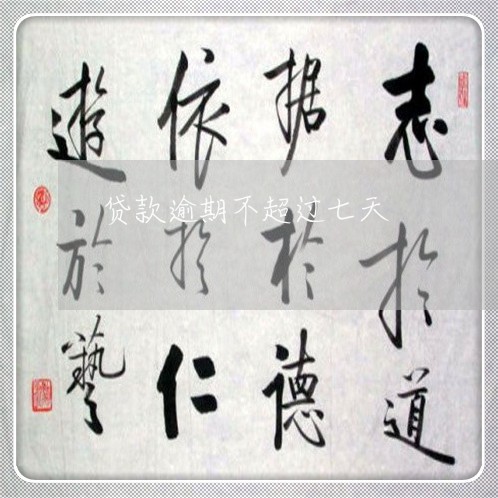 志於道
据於德
依於仁
遊於藝
贷款逾期不超过七天